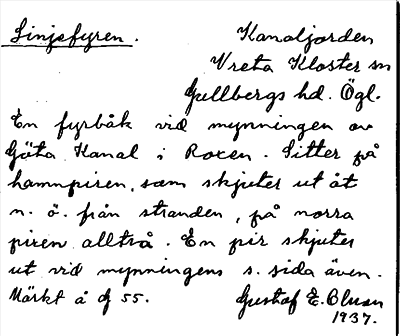 Linjefyren.
Kanaljorden
Vreta Kloster sn
Gullbergs hd. Ögl.
En fyrbåk vid mynningen av
Göta Kanal i Roxen. Sitter på
hamnpiren, som skjuter ut åt
n. ö. från stranden, på norra
piren alltså. En pir skjuter
ut vid mynningens s. sida även.
Märkt å 55.
Gustaf E. Olsson
1937.